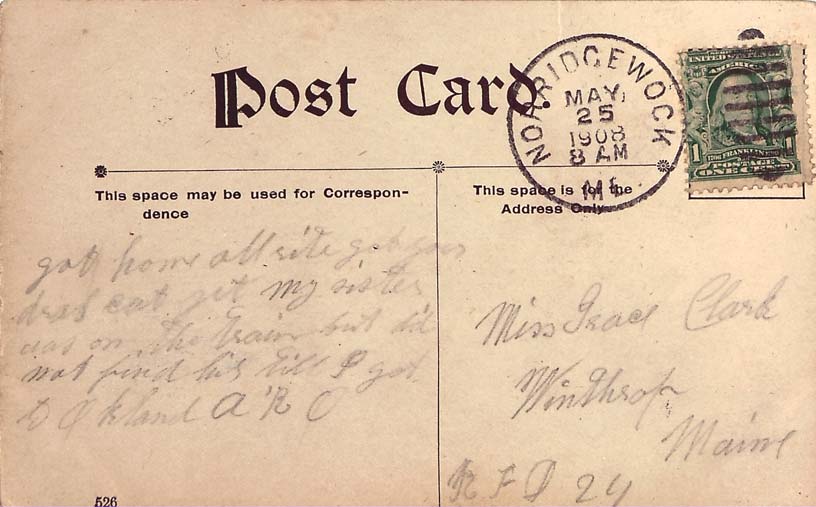 Post Card.
NORRIDGEWOCK
MAY
25
1908
8 AM
ME.
UNITED STATES OF
AMERICA
1 1
FRANKLIN
POSTAGE
ONE CENT
This space may be used for Correspon-
dence
This space is for the
Address Only
got home all rite got your
cut yet my sister
was on the train but did
not find his till I got
to Okland A R O
Miss Grace Clark
Winthrop
Maine
R F D 24
526